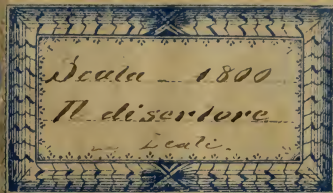 Scala - 1800
Il disertore
- Scali.